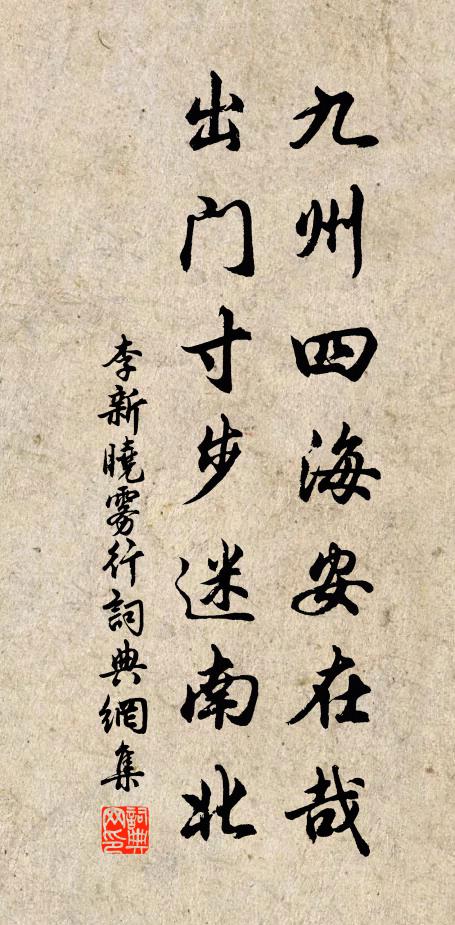 九州四海安在哉
出门寸步迷南北
李新曉雾行詞典網集
詞典网印